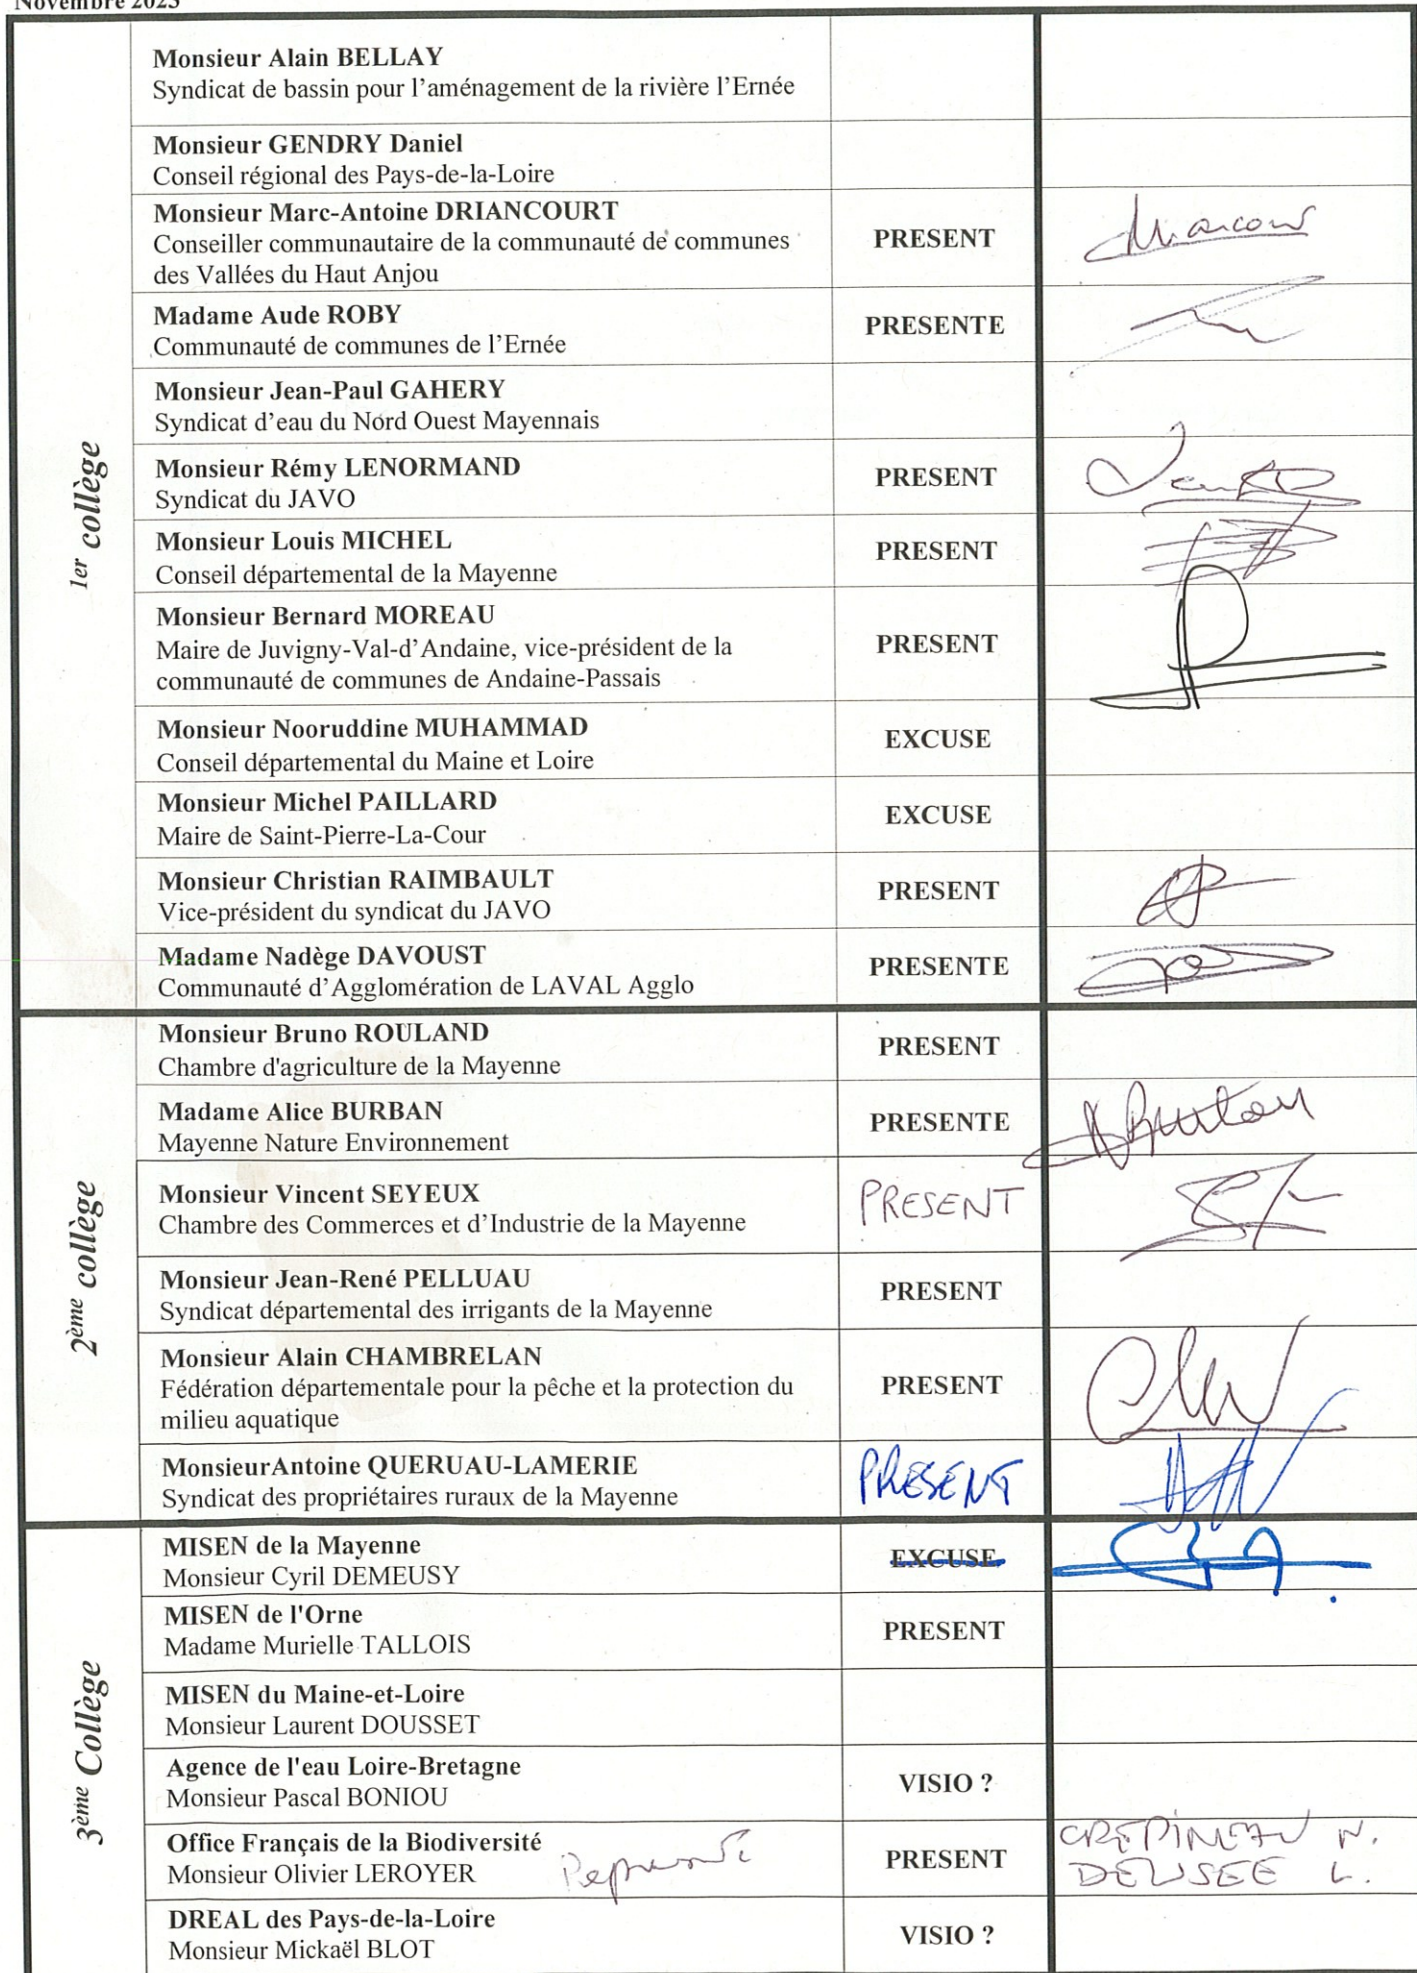 Novembre 2023
1er collège
Monsieur Alain BELLAY
Syndicat de bassin pour l’aménagement de la rivière l’Ernée
Monsieur GENDRY Daniel
Conseil régional des Pays-de-la-Loire
Monsieur Marc-Antoine DRIANCOURT
Conseiller communautaire de la communauté de communes
des Vallées du Haut Anjou
PRESENT
Madame Aude ROBY
Communauté de communes de l’Ernée
PRESENTE
Monsieur Jean-Paul GAHERY
Syndicat d’eau du Nord Ouest Mayennais
Monsieur Rémy LENORMAND
Syndicat du JAVO
PRESENT
Monsieur Louis MICHEL
Conseil départemental de la Mayenne
PRESENT
Monsieur Bernard MOREAU
Maire de Juvigny-Val-d’Andaine, vice-président de la
communauté de communes de Andaine-Passais
PRESENT
Monsieur Nooruddine MUHAMMAD
Conseil départemental du Maine et Loire
EXCUSE
Monsieur Michel PAILLARD
Maire de Saint-Pierre-La-Cour
EXCUSE
Monsieur Christian RAIMBAULT
Vice-président du syndicat du JAVO
PRESENT
Madame Nadège DAVOUST
Communauté d’Agglomération de LAVAL Agglo
PRESENTE
2ème collège
Monsieur Bruno ROULAND
Chambre d'agriculture de la Mayenne
PRESENT
Madame Alice BURBAN
Mayenne Nature Environnement
PRESENTE
Monsieur Vincent SEYEUX
Chambre des Commerces et d’Industrie de la Mayenne
PRESENT
Monsieur Jean-René PELLUAU
Syndicat départemental des irrigants de la Mayenne
PRESENT
Monsieur Alain CHAMBRELAN
Fédération départementale pour la pêche et la protection du
milieu aquatique
PRESENT
MonsieurAntoine QUERUAU-LAMERIE
Syndicat des propriétaires ruraux de la Mayenne
PRESENT
3ème Collège
MISEN de la Mayenne
Monsieur Cyril DEMEUSY
EXCUSE
MISEN de l'Orne
Madame Murielle TALLOIS
PRESENT
MISEN du Maine-et-Loire
Monsieur Laurent DOUSSET
Agence de l'eau Loire-Bretagne
Monsieur Pascal BONIOU
VISIO ?
Office Français de la Biodiversité
Monsieur Olivier LEROYER
PRESENT
CREPINEAU N.
L.
DREAL des Pays-de-la-Loire
Monsieur Mickaël BLOT
VISIO ?